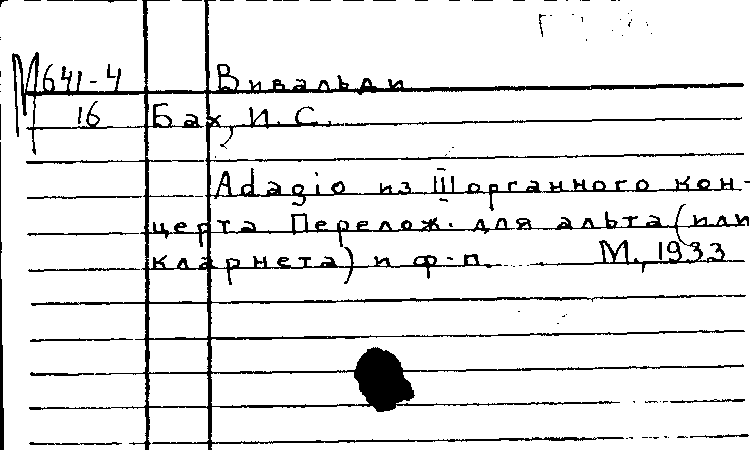 М641-4 Вивальди
16 Бах, И. С.
Adagio из III органного кон-
церта. Перелож. для альта (или
кларнета) и ф-п. М., 1933